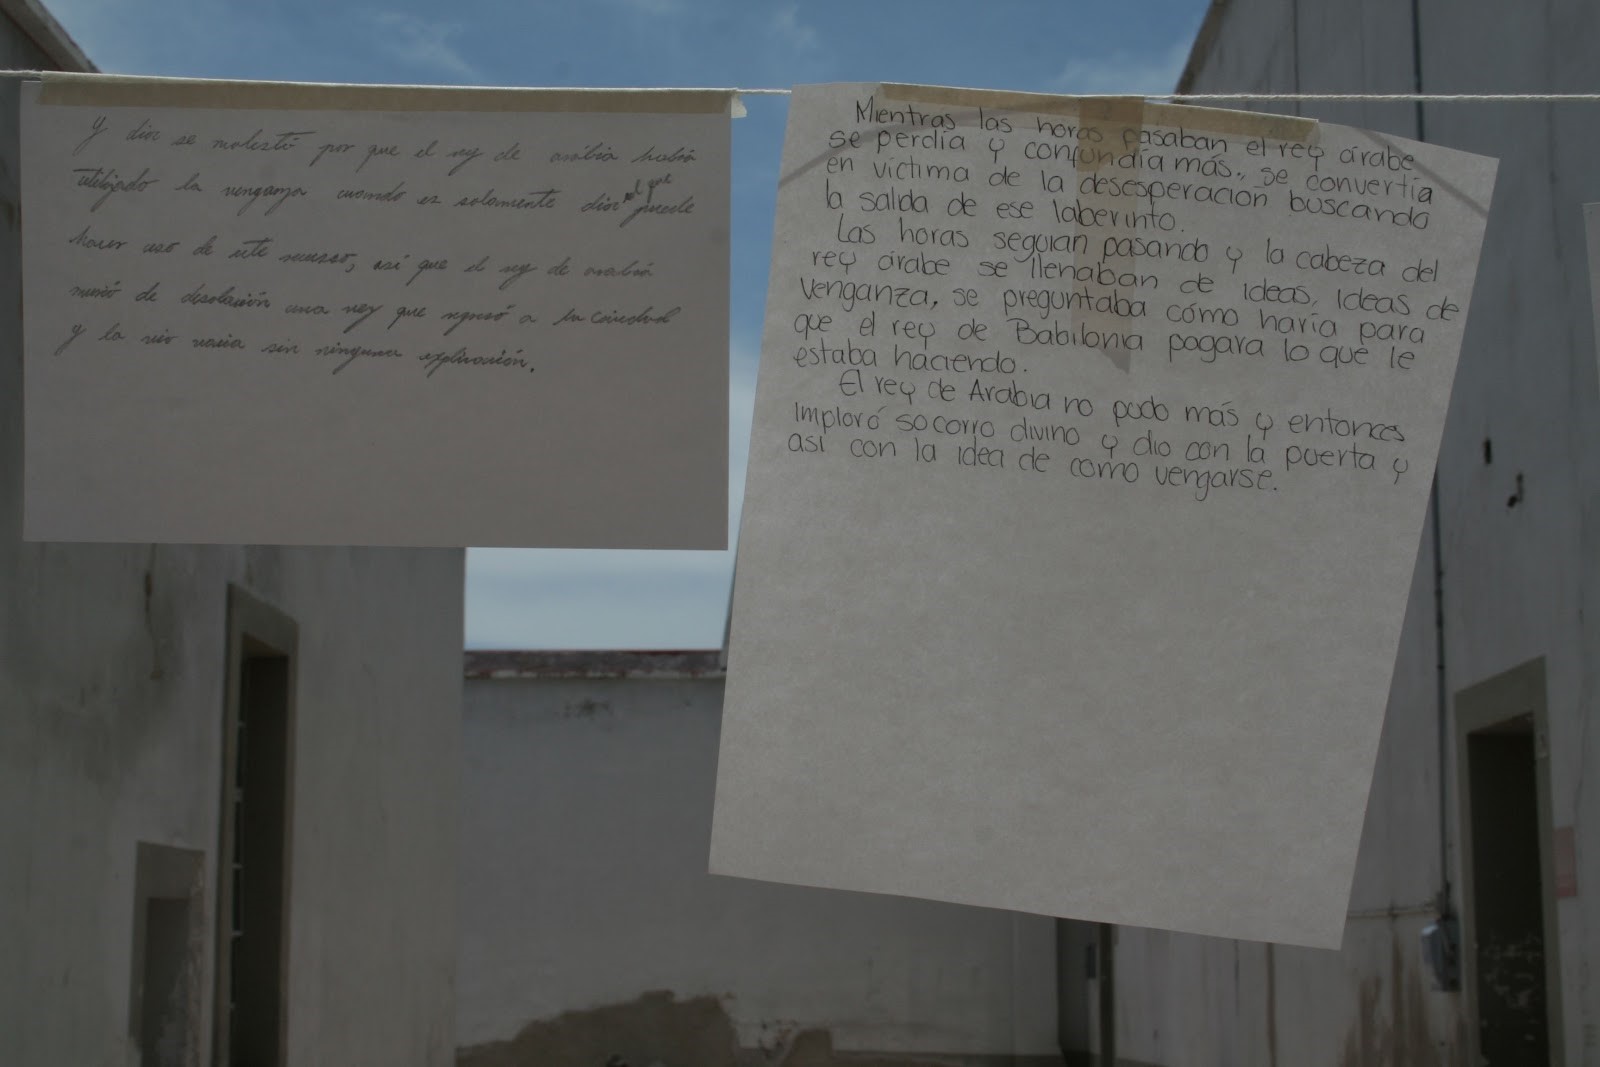 y dios se molestó por que el rey de arabia había
utilizado la venganza cuando es solamente dios el que puede
hacer uso de este recurso, así que el rey de arabia
murió de desolación una vez que regresó a la ciudad
y la vio vacia sin ninguna explicación.
Mientras las horas pasaban el rey árabe
se perdía y confundía más, se convertía
en víctima de la desesperación buscando
la salida de ese laberinto.
Las horas seguían pasando y la cabeza del
rey árabe se llenaban de ideas, ideas de
venganza, se preguntaba cómo haría para
que el rey de Babilonia pagara lo que le
estaba haciendo.
El rey de Arabia no pudo más y entonces
imploró socorro divino y dio con la puerta y
así con la idea de como vengarse.